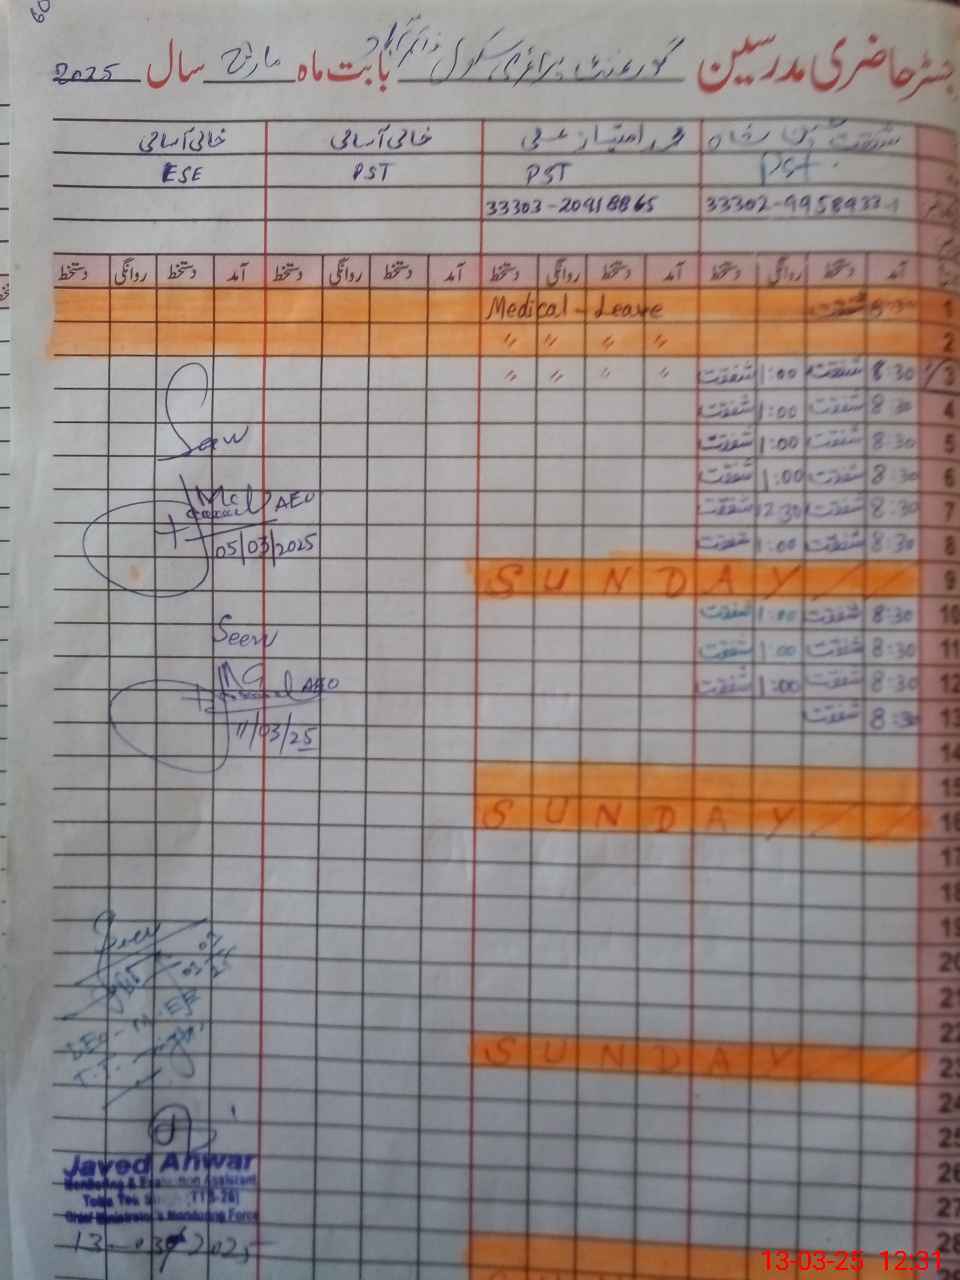 رجسٹر حاضری مدرسین گورنمنٹ پرائمری سکول بابت ماہ مارچ سال 2025
محمد امتیاز علی خالی آسامی خالی آسامی
Pst PST PST ESE
33302-9958933-1 33303-20918865
آمد دستخط روانگی دستخط آمد دستخط روانگی دستخط آمد دستخط روانگی دستخط آمد دستخط روانگی دستخط
1 8:30 شفقت Medical - Leave
2 " " " "
3 8:30 شفقت 1:00 شفقت " " " "
4 8:30 شفقت 1:00 شفقت
5 8:30 شفقت 1:00 شفقت
6 8:30 شفقت 1:00 شفقت
7 8:30 شفقت 12:30 شفقت
8 8:30 شفقت 1:00 شفقت
9 SUNDAY
10 8:30 شفقت 1:00 شفقت
11 8:30 شفقت 1:00 شفقت
12 8:30 شفقت 1:00 شفقت
13 8:30 شفقت
14
15
16 SUNDAY
17
18
19
20
21
22
23 SUNDAY
24
25
26
27
28
AEO
05/03/2025
Seen
AEO
11/03/25
Javed Anwar
Monitoring & Evaluation Assistant
Chief Minister's Monitoring Force
13-03-2025
13-03-25 12:31